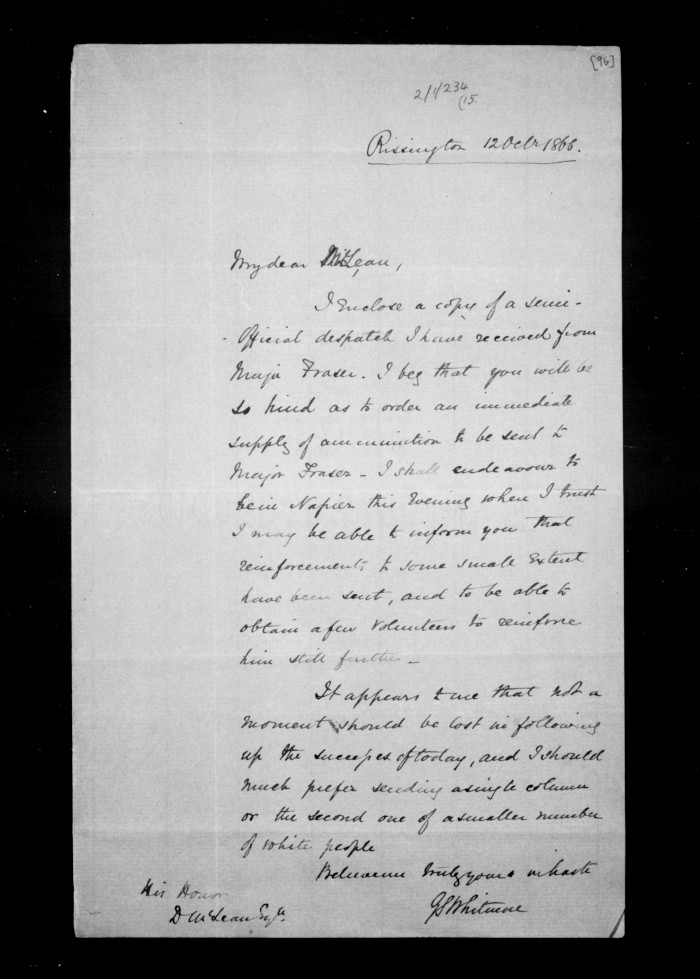 [96]
2/1/234
(15.
Rissington 12 Octr 1866.
My dear McLean,
I Enclose a copy of a semi-
Official despatch I have received from
Major Fraser. I beg that you will be
so kind as to order an immediate
supply of ammunition to be sent to
Major Fraser - I shall endeavour to
be in Napier this Evening when I trust
I may be able to inform you that
reinforcements to some small Extent
have been sent, and to be able to
obtain a few Volunteers to reinforce
him still further -
It appears to me that not a
moment should be lost in following
up the success of today, and I should
much prefer sending a single column
or the second one of a smaller number
of white people
Believe me truly yours in haste
GS Whitmore
His Honor
D McLean Esqre.